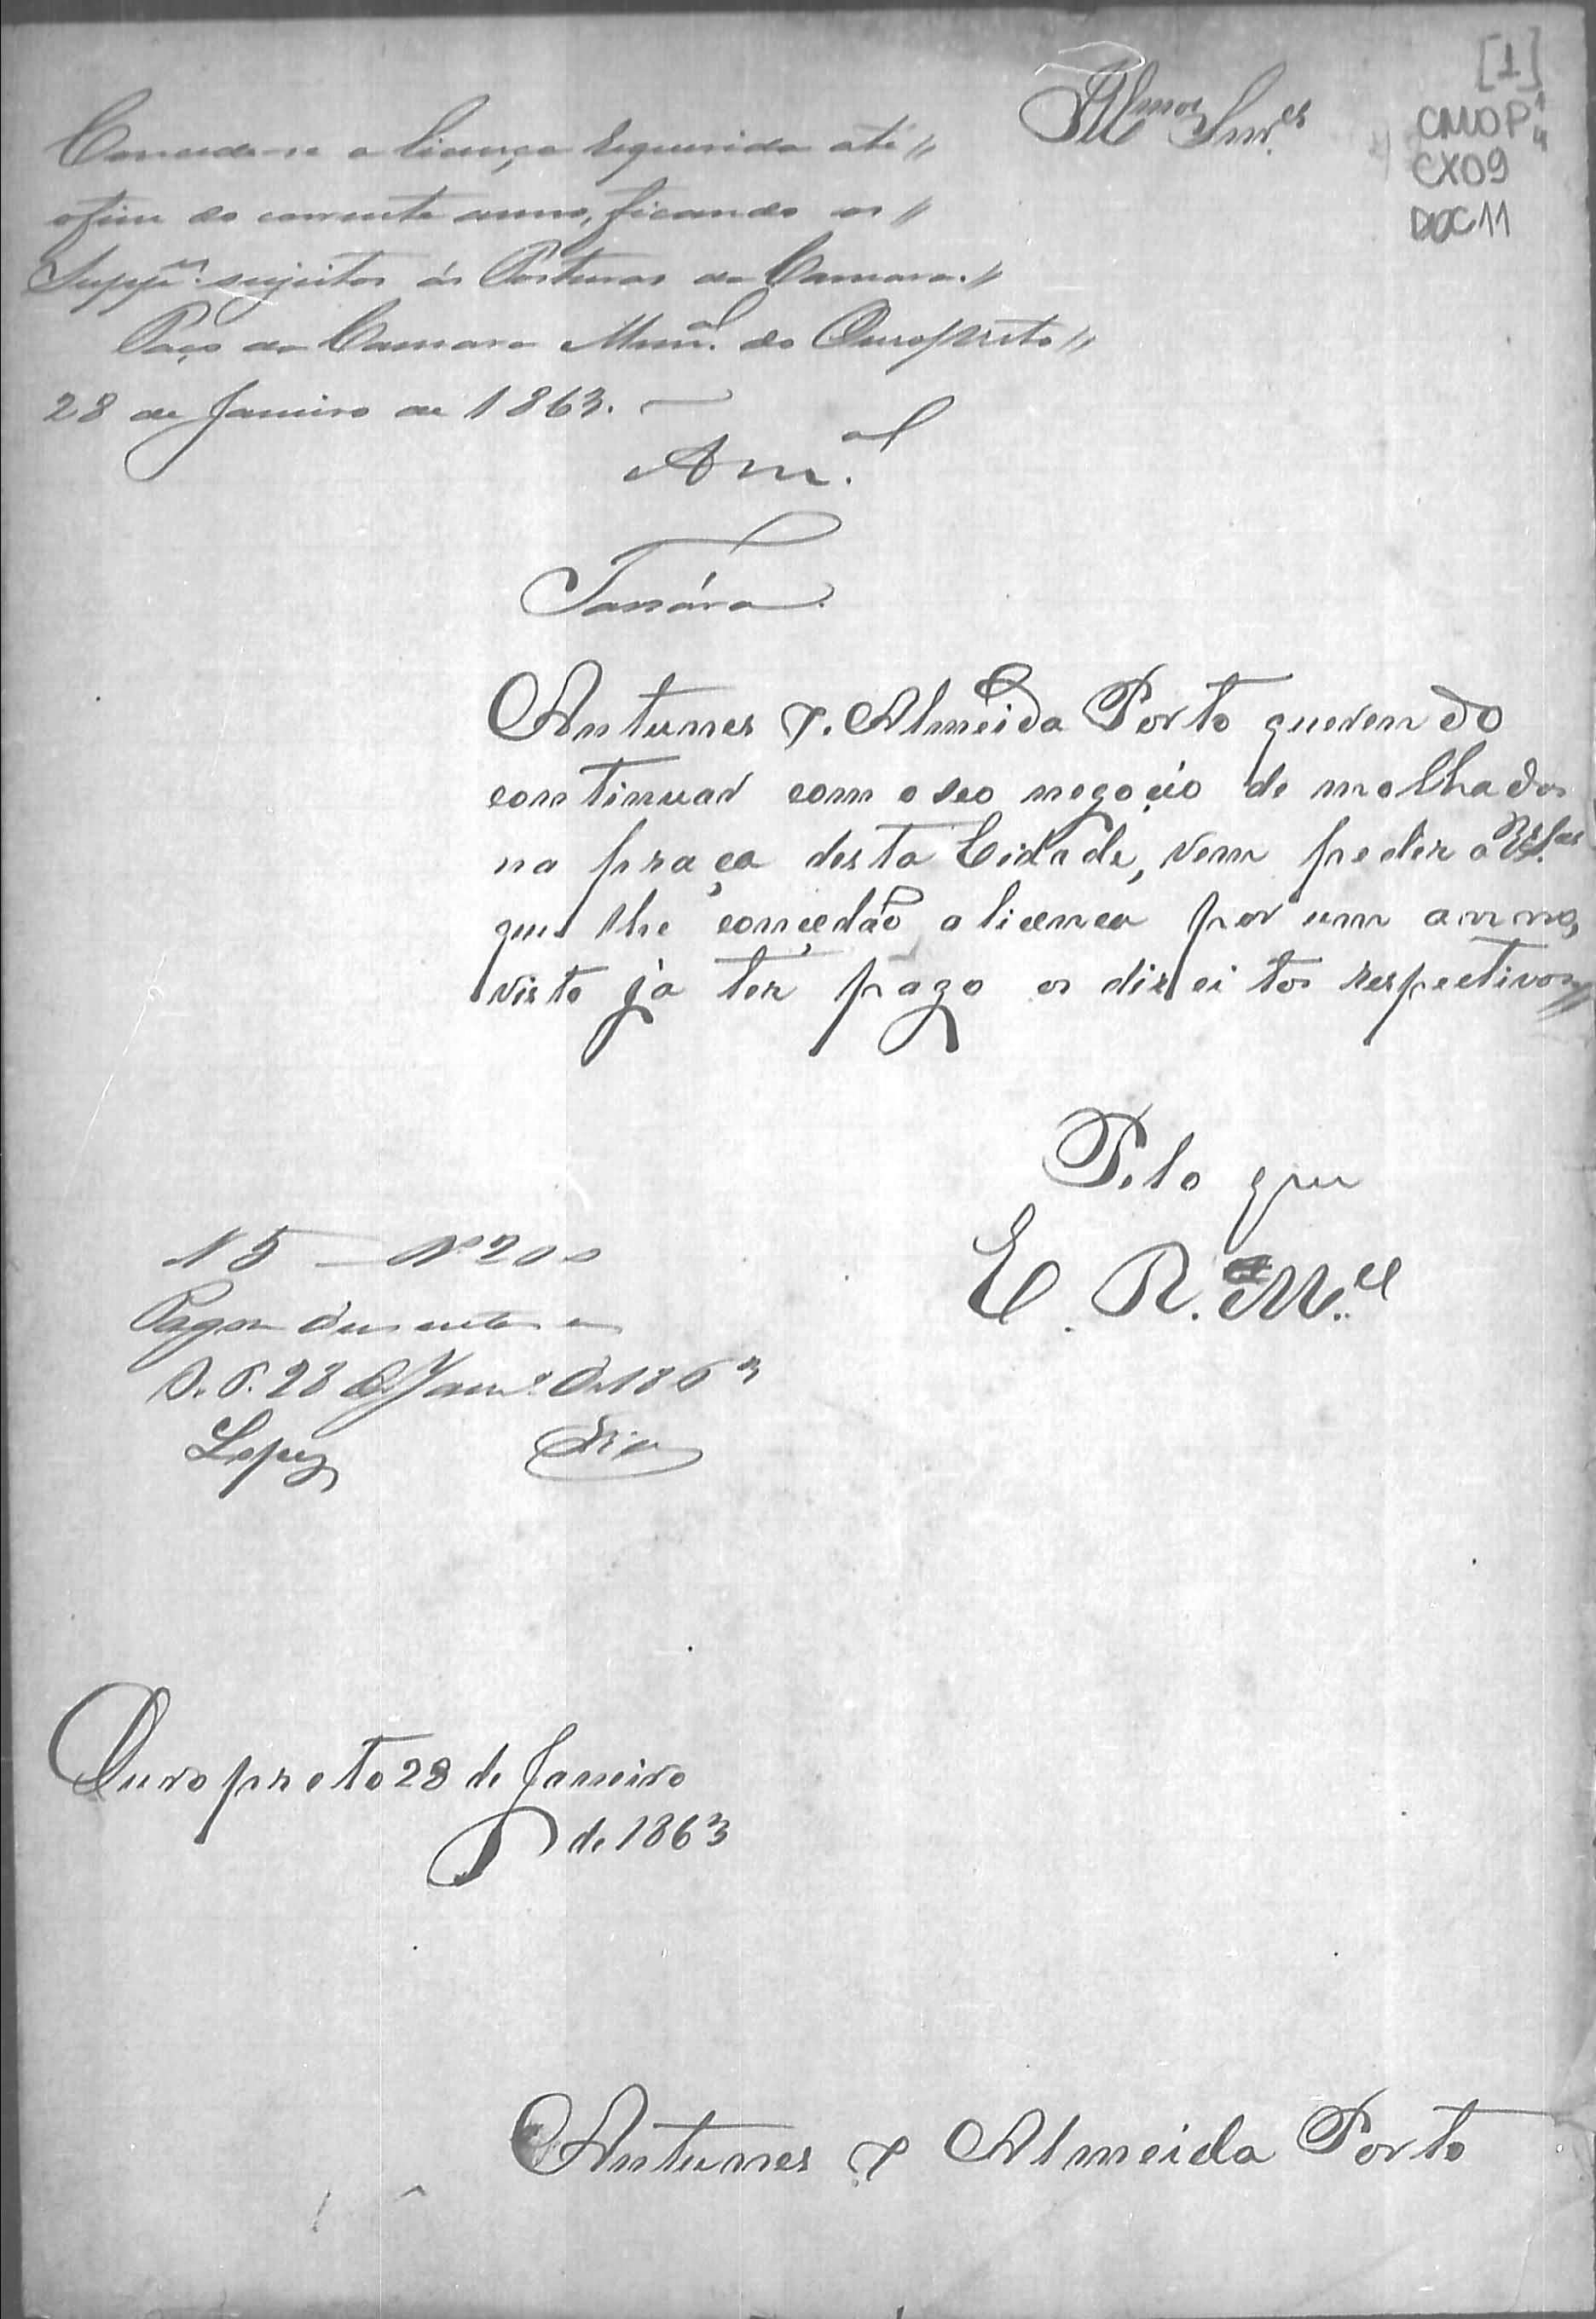 [1]
CMOP
CX09
DOC 11
Illmos Snr.es
Concede-se a licença requerida até //
o fim do corrente anno, ficando os //
Supp.es sujeitos ás Posturas da Camara. //
Paço da Camara Mun.al do Ouro preto //
28 de Janeiro de 1863. —
Am.al
Antunes & Almeida Porto querendo
continuar com o seo negoçio de molhados
na praça desta Cidade, vem pedir a VSas
que lhe conçedão a licença por um anno,
visto já ter pago os direitos respectivos //
Pelo que
E. R. M.ce
N 5 — Rs 200
Pagou duzentos
O. P. 28 de Janro. de 1863
Lopes
Ouro preto 28 de Janeiro
de 1863
Antunes & Almeida Porto